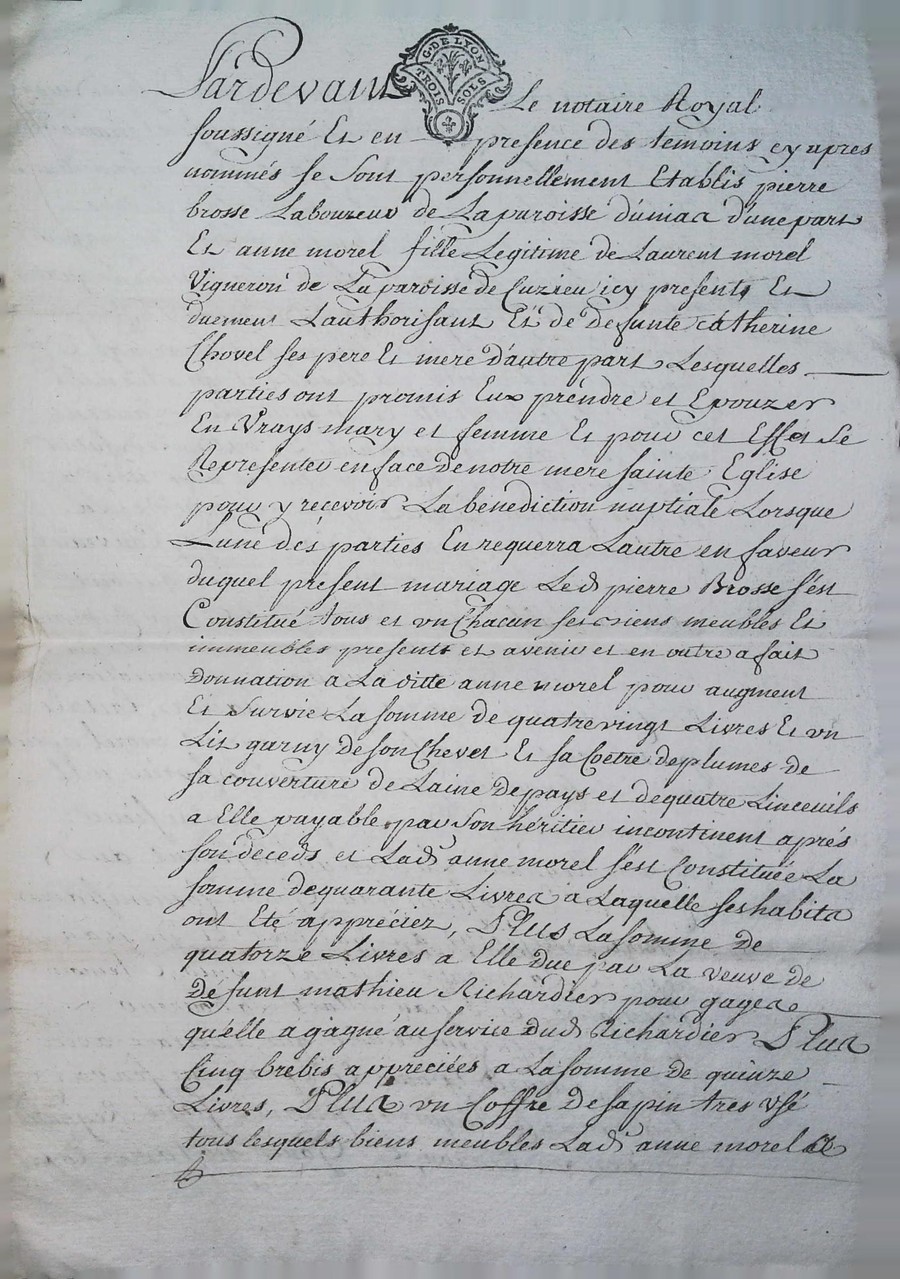 G. DE LYON
TROIS SOLS
Pardevant Le notaire Royal
soussigné Et en presence des temoins cy apres
nommés se sont personnellement Etablis pierre
brosse Laboureur de La paroisse d'uniaa d'une part
Et anne morel fille Legitime de Laurent morel
Vigneron de La paroisse de Cuzieu icy present Et
duement Lauthorisant Et de defunte catherine
Chovel ses pere Et mere d'autre part Lesquelles
parties ont promis Eux prendre et Epouzer
En Vrays mary et femme Et pour cet Effet Se
Representer en face de notre mere sainte Eglise
pour y recevoir La benediction nuptiale Lorsque
Lune des parties En requerra Lautre en faveur
duquel present mariage Led pierre Brosse s'est
Constitué tous et un Chacun ses biens meubles Et
immeubles presents et avenir et en outre a fait
donnation a La ditte anne morel pour augment
Et Survie La somme de quatre vingt Livres Et un
Lit garny de son Chevet Et sa Coetre de plumes de
sa couverture de Laine de pays et de quatre Linceuils
a Elle payable par son héritier incontinent aprés
son deceds et Lad anne morel s'est Constituée La
somme de quarante Livres a Laquelle ses habits
ont Eté appréciez, Plus La somme de
quatorze Livres a Elle due par La veuve de
defunt mathieu Richardier pour gages
qu'elle a gagné au service dud Richardier Plus
Cinq brebis appreciées a La somme de quinze
Livres, Plus un Coffre de sapin tres usé
tous lesquels biens meubles Lad anne morel